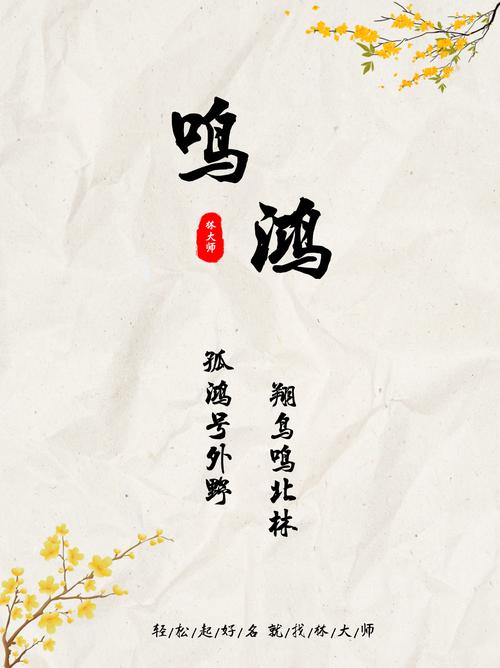 鸣
鸿
林大师
孤鸿号外野
翔鸟鸣北林
轻/松/起/好/名 就/找/林/大/师